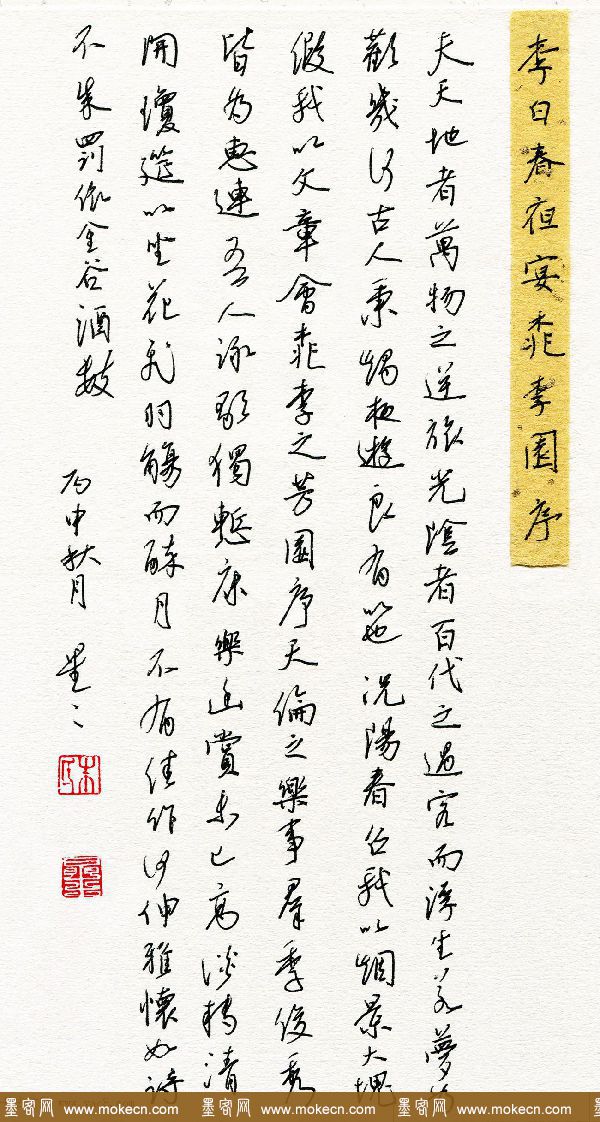 李白春夜宴桃李園序
夫天地者萬物之逆旅光陰者百代之過客而浮生若夢為
歡幾何古人秉燭夜遊良有以也況陽春召我以烟景大塊
假我以文章會桃李之芳園序天倫之樂事羣季俊秀
皆為惠連吾人詠歌獨慙康樂幽賞未已高談轉清
開瓊筵以坐花飛羽觴而醉月不有佳作何伸雅懷如詩
不成罰依金谷酒數
丙申秋月
墨客网 www.mokecn.com 墨客网 www.mokecn.com 墨客网 www.mokecn.com